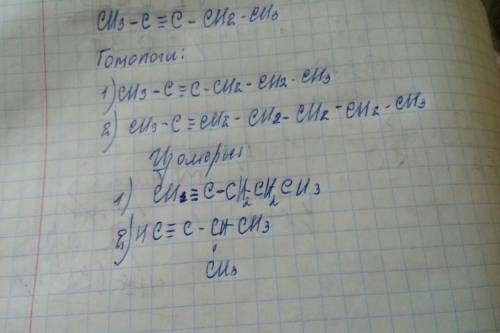 CH3-C≡C-CH2-CH3
Гомологи:
1) CH3-C≡C-CH2-CH2-CH3
2) CH3-C≡CH2-CH2-CH2-CH2-CH3
Изомеры
1) CH≡C-CH2CH2CH3
2) HC≡C-CH-CH3
CH3